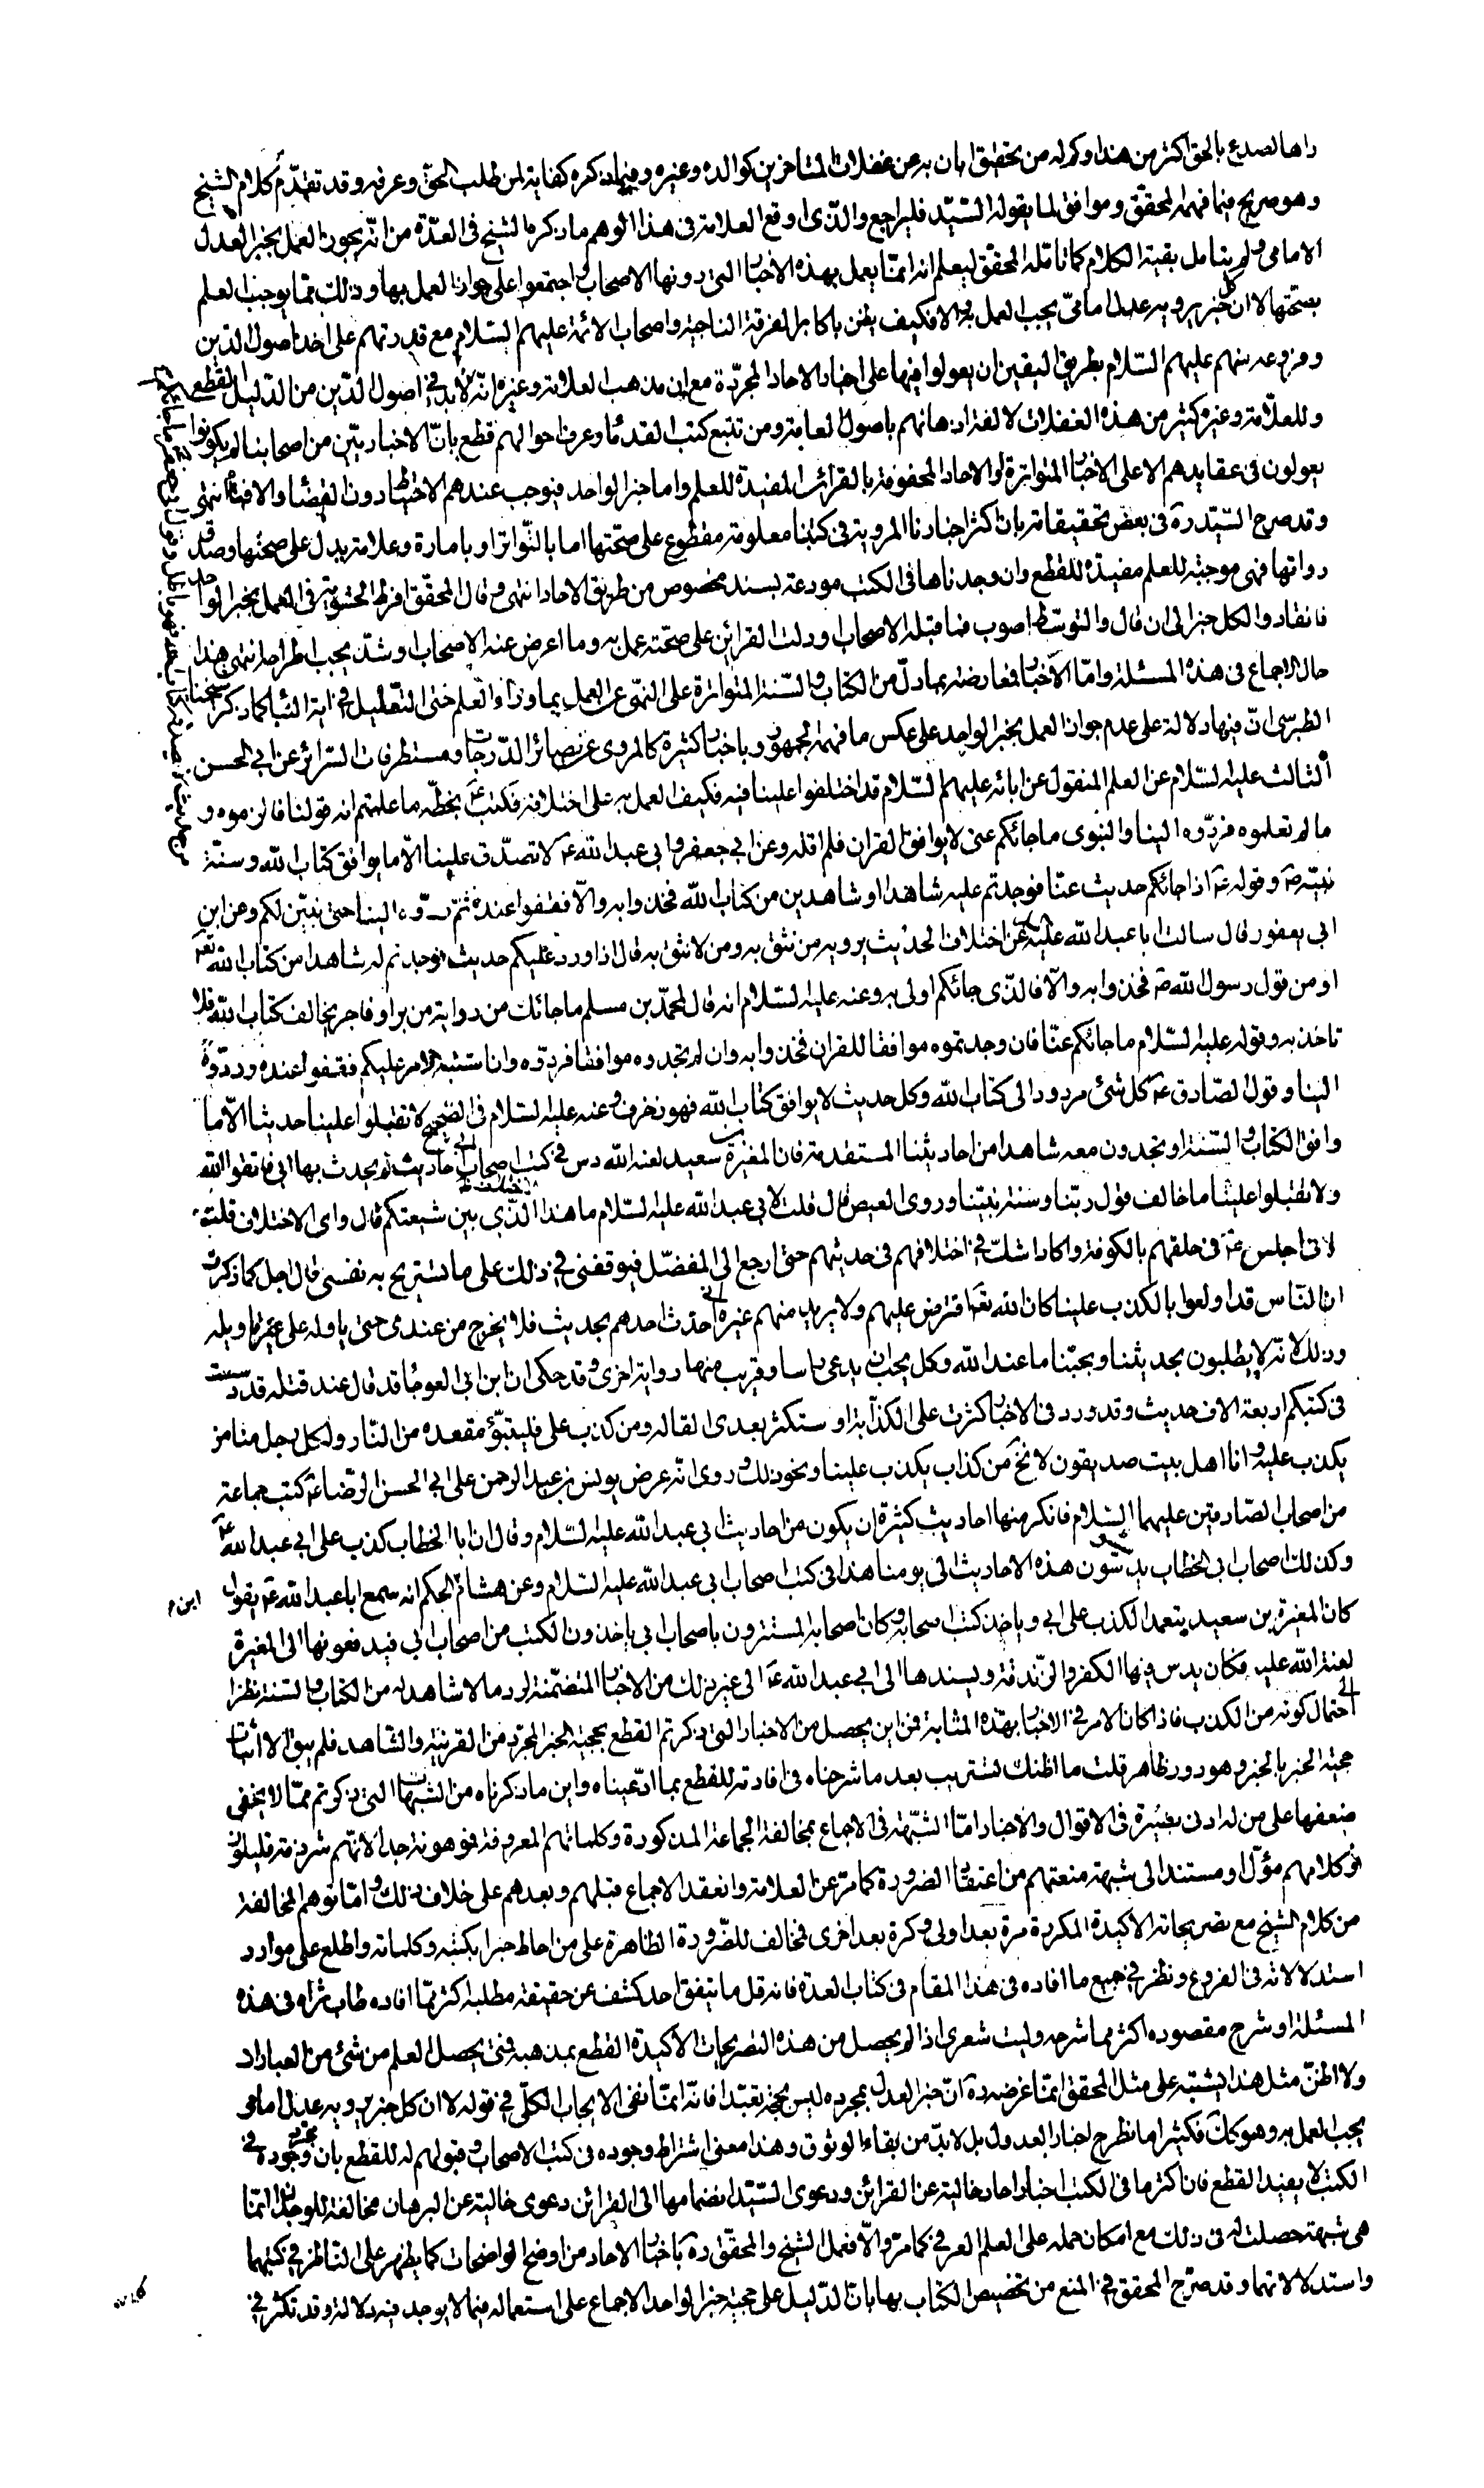 راها لصدع بالحق اكثر من هذا وكم له من تحقيق ابان به عن غفلات المتاخرين كوالده وغيره وفيما ذكره كفاية لمن طلب الحق وعرفه وقد تقدم كلام الشيخ
وهو صريح فيما فهمه المحقق وموافق لما يقوله السيد فليراجع والذى اوقع العلامة فى هذا الوهم ما ذكره الشيخ فى العدة من انه يجوز العمل بخبر العدل
الامامى ولم يتامل بقية الكلام كما تامله المحقق ليعلم انه انما يعمل بهذه الاخبار التى دونها الاصحاب واجتمعوا على جواز العمل بها وذلك مما يوجب العلم
بصحتها لا ان كل خبر يرويه عدل امامى يجب العمل به والا فكيف يظن باكابر الفرقة الناجية واصحاب الائمة عليهم السلام مع قدرتهم على اخذ اصول الدين
وفروعه منهم عليهم السلام بطريق اليقين ان يعولوا فيها على اخبار الاحاد المجردة مع ان مذهب العلامة وغيره انه لابد فى اصول الدين من الدليل القطعى
وللعلامة وغيره كثير من هذه الغفلات لالفة اذهانهم باصول العامة ومن تتبع كتب القدماء وعرف احوالهم قطع بان الاخباريين من اصحابنا لم يكونوا
يعولون فى عقايدهم الا على الاخبار المتواترة او الاحاد المحفوفة بالقرائن المفيدة للعلم واما خبر الواحد فيوجب عندهم الاحتياط دون القضاء والافتاء انتهى
وقد صرح السيد ره فى بعض تحقيقاته بان اكثر اخبارنا المروية فى كتبنا معلومة مقطوع على صحتها اما بالتواتر او بامارة وعلامة يدل على صحتها وصدق
رواتها فهى موجبة للعلم مفيدة للقطع وان وجدناها فى الكتب مودعة بسند مخصوص من طريق الاحاد انتهى وقال المحقق افرط الحشوية فى العمل بخبر الواحد
فانقادوا لكل خبر الى ان قال والتوسط اصوب فما قبله الاصحاب ودلت القرائن على صحته عمل به وما اعرض عنه الاصحاب او شذ يجب اطراحه انتهى هذا
حال الاجماع فى هذه المسئلة واما الاخبار فمعارضة بما دل من الكتاب والسنة المتواترة على النهى عن العمل بما وراء العلم حتى التعليل فى اية النبأ كما ذكر شيخنا
الطبرسى ان فيها دلالة على عدم جواز العمل بخبر الواحد على عكس ما فهمه الجمهور وباخبار كثيرة كالمروى عن بصائر الدرجات ومستطرفات السرائر عن ابى الحسن
الثالث عليه السلام عن العلم المنقول عن ابائه عليهم السلام قد اختلفوا علينا فيه فكيف العمل به على اختلافه فكتب ع بخطه ما علمتم انه قولنا فالزموه و
ما لم تعلموه فردوه الينا والنبوى ما جائكم عنى لا يوافق القران فلم اقله وعن ابى جعفر وابى عبد الله ع لا تصدق علينا الا ما يوافق كتاب الله وسنة
نبيه ص وقوله ع اذا جائكم حديث عنا فوجدتم عليه شاهدا او شاهدين من كتاب الله فخذوا به والا فقفوا عنده ثم ردوه الينا حتى نبين لكم وعن ابن
ابى يعفور قال سالت ابا عبد الله عليه السلام عن اختلاف الحديث يرويه من نثق به ومن لا نثق به قال اذا ورد عليكم حديث فوجدتم له شاهدا من كتاب الله تعالى
او من قول رسول الله ص فخذوا به والا فالذى جائكم اولى به وعنه عليه السلام انه قال لمحمد بن مسلم ما جائك من رواية من بر او فاجر يخالف كتاب الله فلا
تاخذ به وقوله عليه السلام ما جائكم عنا فان وجدتموه موافقا للقران فخذوا به وان لم تجدوه موافقا فردوه وان اشتبه الامر عليكم فقفوا عنده وردوه
الينا وقول الصادق ع كل شئ مردود الى كتاب الله وكل حديث لا يوافق كتاب الله فهو زخرف وعنه عليه السلام فى الصحيح لا تقبلوا علينا حديثا الا ما
وافق الكتاب والسنة او تجدون معه شاهدا من احاديثنا المتقدمة فان المغيرة بن سعيد لعنه الله دس فى كتب اصحاب ابى احاديث لم يحدث بها ابى فاتقوا الله
ولا تقبلوا علينا ما خالف قول ربنا وسنة نبينا وروى الفيض قال قلت لابى عبد الله عليه السلام ما هذا الاختلاف الذى بين شيعتكم قال واى الاختلاف قلت
لانى اجلس ع فى حلقهم بالكوفة واكاد اشك فى اختلافهم فى حديثهم حتى ارجع الى المفضل فيوقفنى فى ذلك على ما تستريح به نفسى قال اجل كما ذكرت
ان الناس قد اولعوا بالكذب علينا كان الله تعالى افترض عليهم ولا يريد منهم غيره انى احدث احدهم بحديث فلا يخرج من عندى حتى ياوله على غير تاويله
وذلك لانهم لا يطلبون بحديثنا وبحبنا ما عند الله وكل يحب ان يدعى راسا وقريب منها رواية اخرى وقد حكى ان ابن ابى العوجا قد قال عند قتله قد دسست
فى كتبكم اربعة الاف حديث وقد ورد فى الاخبار كثرت على الكذابة او ستكثر بعدى القالة ومن كذب على فليتبوء مقعده من النار ولكل رجل منا من
يكذب عليه وانا اهل بيت صديقون لا نخ من كذاب يكذب علينا ونحو ذلك وروى انه عرض يونس بن عبد الرحمن على ابى الحسن الرضا ع كتب جماعة
من اصحاب الصادقين عليهما السلام فانكر منها احاديث كثيرة ان يكون من احاديث ابى عبد الله عليه السلام وقال ان ابا الخطاب كذب على ابى عبد الله ع
وكذلك اصحاب ابى الخطاب يدسون هذه الاحاديث الى يومنا هذا فى كتب اصحاب ابى عبد الله عليه السلام وعن هشام الحكم انه سمع ابا عبد الله ع يقول
كان المغيرة بن سعيد يتعمد الكذب على ابى وياخذ كتب اصحابه وكان اصحابه المستترون باصحاب ابى ياخذون الكتب من اصحاب ابى فيدفعونها الى المغيرة
لعنة الله عليه فكان يدس فيها الكفر والزندقة ويسندها الى ابى عبد الله ع الى غير ذلك من الاخبار المتضمنة لرد ما لا شاهد له من الكتاب والسنة نظرا
الى احتمال كونه من الكذب فاذا كان الامر فى الاخبار بهذه المثابة فمن اين يحصل من الاخبار التى ذكرتم القطع بحجية الخبر المجرد من القرينة والشاهد فلم يبق الا اثبات
حجية الخبر بالخبر وهو دور ظاهر قلت ما اظنك تستريب بعد ما شرحناه فى افادته للقطع بما ادعيناه واين ما ذكرناه من الشبهات التى ذكرتم مما لا يخفى
ضعفها على من له ادنى بصيرة فى الاقوال والاخبار اما الشبهة فى الاجماع بمخالفة الجماعة المذكورة وكلماتهم المعروفة فموهونة جدا لانهم شرذمة قليلون
وكلامهم مؤل او مستند الى شبهة منعتهم من اعتقاد الضرورة كما مر عن العلامة وانعقد الاجماع قبلهم وبعدهم على خلاف ذلك واما توهم المخالفة
من كلام الشيخ مع تصريحاته الاكيدة المكررة مرة بعد اولى وكرة بعد اخرى فمخالف للضرورة الظاهرة على من احاط خبرا بكتبه وكلماته واطلع على موارد
استدلالاته فى الفروع ونظر فى جميع ما افاده فى هذا المقام فى كتاب العدة فانه قل ما يتفق احد كشف عن حقيقة مطلبه اكثر مما افاده طاب ثراه فى هذه
المسئلة او شرح مقصوده اكثر مما شرحه وليت شعرى اذا لم يحصل من هذه التصريحات الاكيدة القطع بمذهبه فمتى يحصل العلم من شئ من العبارات
ولا اظن مثل هذا يشتبه على مثل المحقق انما غرضه ره ان خبر العدل بمجرده ليس بحجة تعبدا فانه انما نفى الايجاب الكلى فى قوله لا ان كل خبر يرويه عدل امامى
يجب العمل به وهو كك فكثيرا ما نطرح اخبار العدول بل لابد من بقاء الوثوق وهذا معنى اشتراط وجوده فى كتب الاصحاب وقبولهم له للقطع بان مجرد وجوده فى
الكتب لا يفيد القطع فان اكثر ما فى الكتب اخبار احاد خالية عن القرائن ودعوى السيد انضمامها الى القرائن دعوى خالية عن البرهان مخالفة للوجدان انما
هى شبهة حصلت له فى ذلك مع امكان حمله على العلم العرفى كما مر والا فعمل الشيخ والمحقق ره باخبار الاحاد من اوضح الواضحات كما يظهر على الناظر فى كتبهما
واستدلالاتهما وقد صرح المحقق فى المنع من تخصيص الكتاب بها بان الدليل على حجية خبر الواحد الاجماع على استعماله فيما لا يوجد فيه دلالة وقد تكثر فى
ابن م